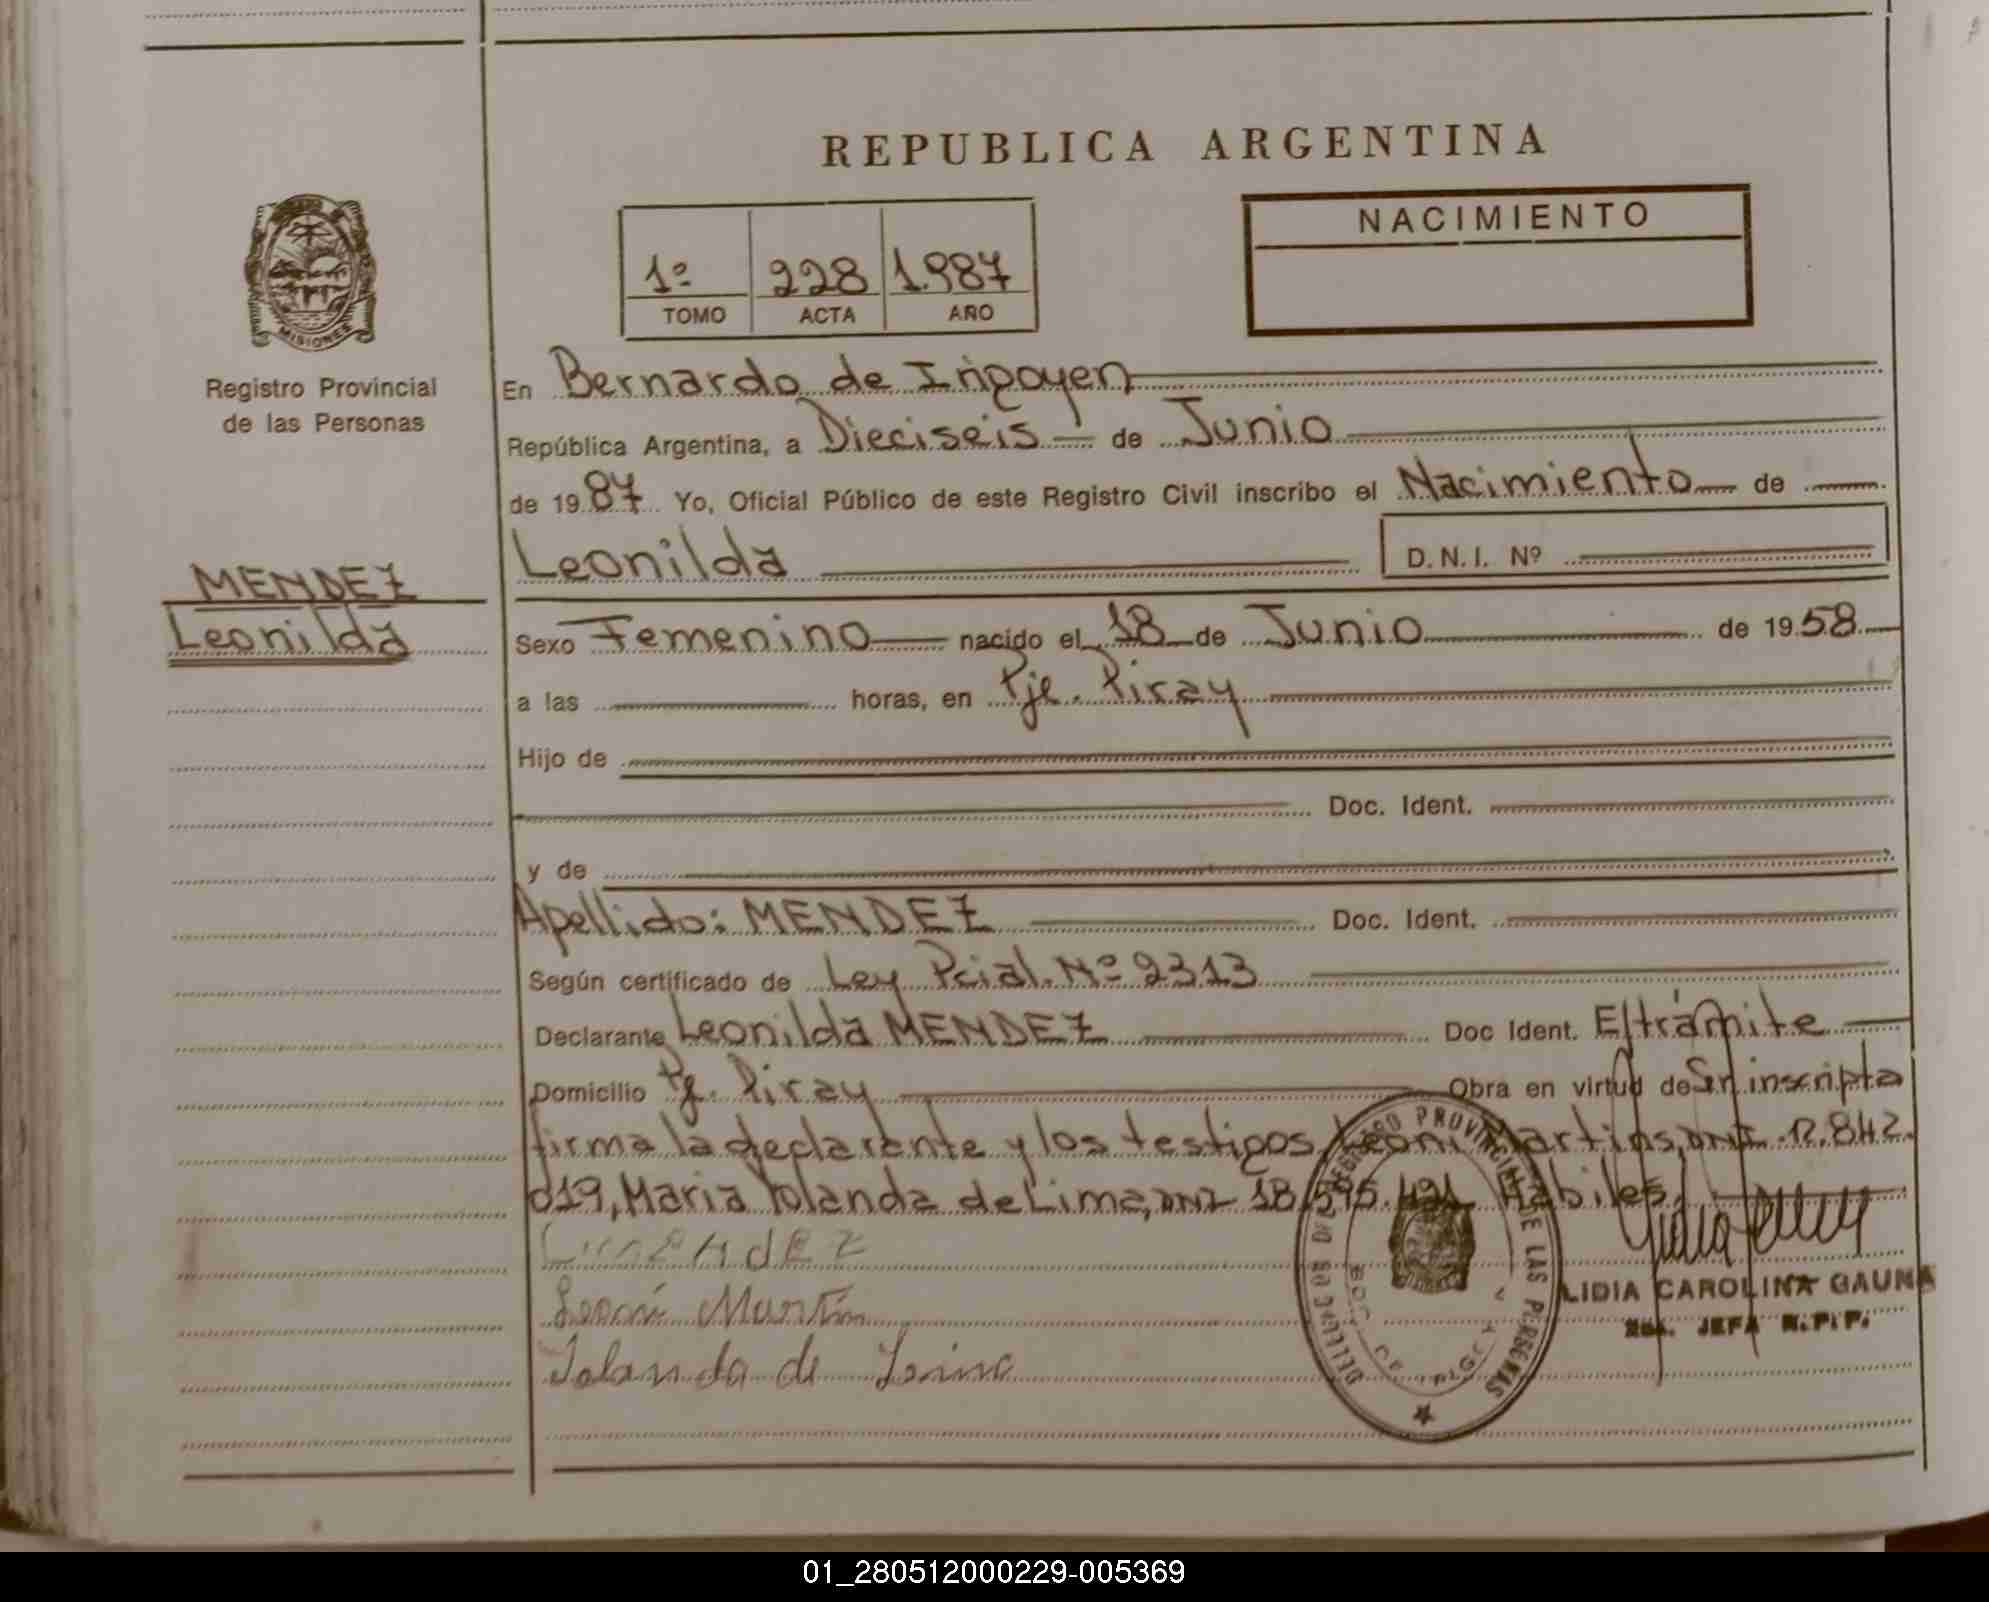 REPUBLICA ARGENTINA
NACIMIENTO
1º 228 1.987
TOMO ACTA AÑO
MISIONES
Registro Provincial
de las Personas
En Bernardo de Irigoyen
República Argentina, a Dieciseis de Junio
de 1987 Yo, Oficial Público de este Registro Civil inscribo el Nacimiento de
Leonilda D.N.I. Nº
MENDEZ
Leonilda
Sexo Femenino nacido el 18 de Junio de 1958
a las horas, en Pje. Piray
Hijo de
Doc. Ident.
y de
Apellido: MENDEZ Doc. Ident.
Según certificado de Ley Pcial. Nº 2313
Declarante Leonilda MENDEZ Doc Ident. E/trámite
Domicilio Pje. Piray Obra en virtud de Sn inscripta
firma la declarante y los testigos Leoni Martins, DNI 12.842.
019, Maria Iolanda de Lima, DNI 18. Habiles
Leoni Martin
Iolanda de Lima
REGISTRO PROVINCIAL DE LAS PERSONAS
LIDIA CAROLINA GAUNA
JEFA R.P.P.
01_280512000229-005369